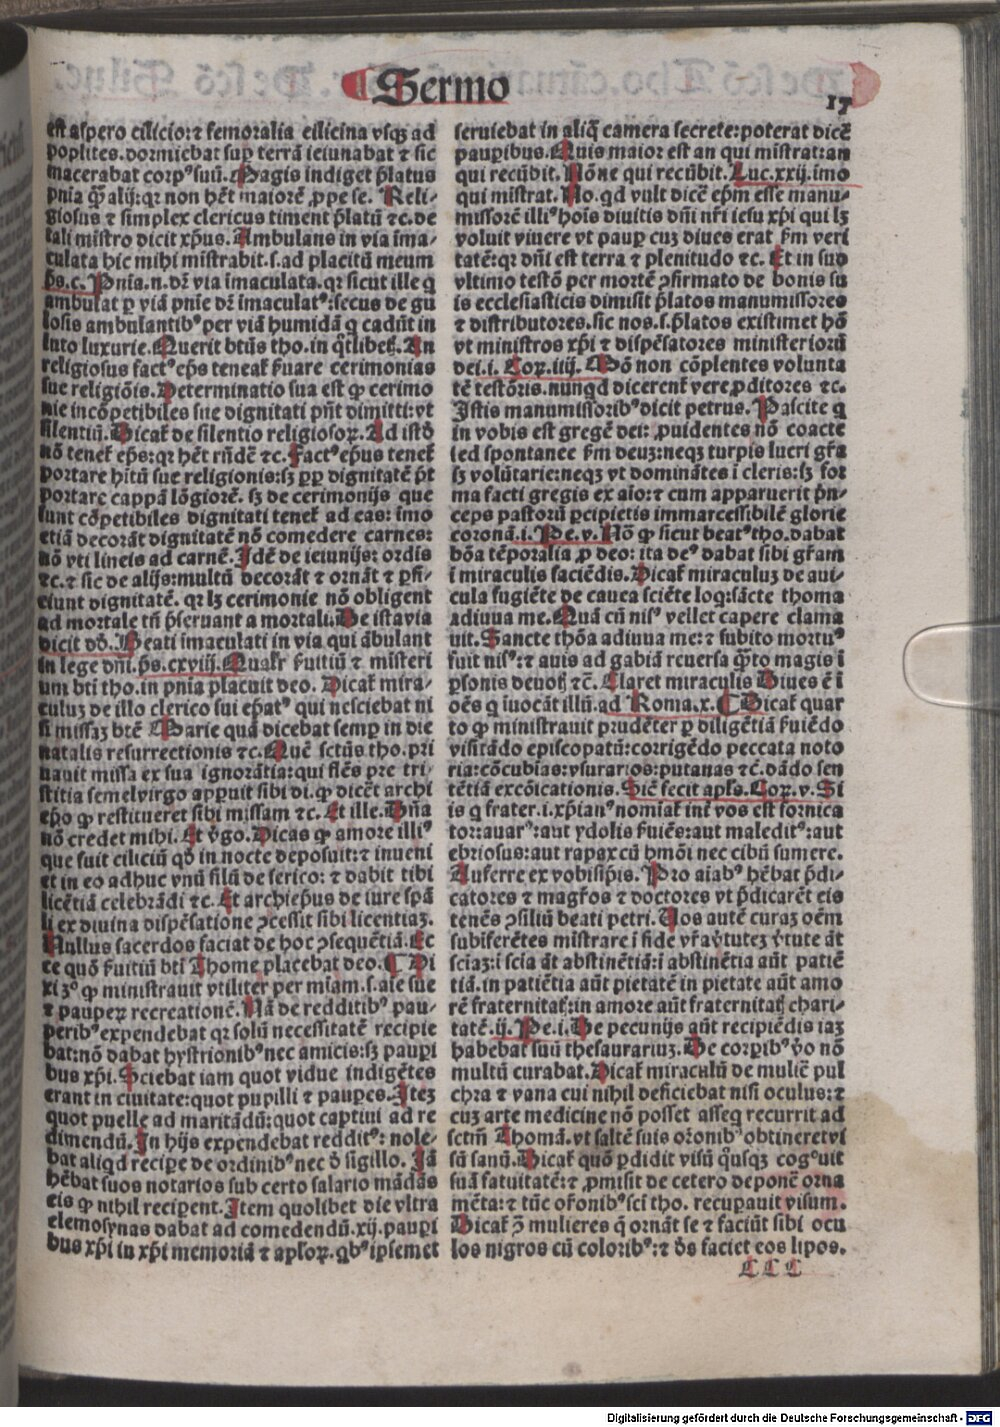 Sermo
17
est aspero cilicio: ⁊ femoralia cilicina vsqꝫ ad
poplites. dormiebat suꝑ terrã ieiunabat ⁊ sic
macerabat corpꝰ suũ. Magis indiget p̃latus
pnĩa q̃ꝫ alij: qꝛ non hẽt maiorẽ ꝓpe se. Reli-
giosus ⁊ simplex clericus timent p̃latũ ⁊c. de
tali mĩstro dicit xp̃us. Ambulans in via ĩma-
culata hic mihi mĩstrabit. s. ad placitũ meum
p̃s. c. Pnĩa. n. dr̃ via ĩmaculata. qꝛ sicut ille q
ambulat ꝑ viã pnĩe dr̃ ĩmaculatꝰ: secus de gu
losis ambulantibꝰ per viã humidã q cadũt in
luto luxurie. Querit btũs tho. in q̃tlibetꝭ. An
religiosus factꝰ ep̃s teneat̃ ẜuare cerimonias
sue religiõis. Determinatio sua est ꝙ cerimo
nie incõpetibiles sue dignitati pñt dimitti: vt
silentiũ. Dicat̃ de silentio religiosoꝝ. Ad istð
nõ tenet̃ ep̃s: qꝛ hẽt rñdẽ ⁊c. Factꝰ ep̃us tenet̃
portare hĩtũ sue religionis: sꝫ ꝓpꝑ dignitatẽ p̃t
portare cappã lõgiorẽ. sꝫ de cerimonijs que
sunt cõpetibiles dignitati tenet̃ ad eas: ĩmo
etiã decorãt dignitatẽ nõ comedere carnes:
nõ vti lineis ad carnẽ. Idẽ de ieiunijs: ordis
⁊c. ⁊ sic de alijs: multũ decorãt ⁊ ornãt ⁊ ꝑfi-
ciunt dignitatẽ. qꝛ lꝫ cerimonie nõ obligent
ad mortale tñ p̃seruant a mortali. De ista via
dicit dð. Beati ĩmaculati in via qui ãbulant
in lege dñi. p̃s. cxviij. Qualr̃ ẜuitiũ ⁊ misteri
um bti tho. in pnĩa placuit deo. Dicat̃ mira-
culuꝫ de illo clerico sui ep̃atꝰ qui nesciebat ni
si missaꝫ btẽ Marie quã dicebat semꝑ in die
natalis resurrectionis ⁊c. Quẽ sctũs tho. pri
uauit missa ex sua ignorãtia: qui flẽs pre tri-
stitia semel virgo appuit sibi di. ꝙ dicẽt archi
ep̃o ꝙ restitueret sibi missam ⁊c. Et ille. Dña
nõ credet mihi. Et v̾go. Dicas ꝙ amore illiꝰ
que fuit ciliciũ qð in nocte deposuit: ⁊ inueni
et in eo adhuc vnũ filũ de serico: ⁊ dabit tibi
licẽtiã celebrãdi ⁊c. Et archiep̃us de iure spã
li ex diuina dispẽsatione ꝯcessit sibi licentiaꝫ.
Nullus sacerdos faciat de hoc ꝯsequẽtiã. Ec
ce quõ ẜuitiũ bti Thome placebat deo. ¶ Di
xi 3º ꝙ ministrauit vtiliter per mĩam. s. aĩe sue
⁊ paupeꝝ recreationẽ. Nã de redditibꝰ pau-
peribꝰ expendebat qꝛ solũ necessitatẽ recipie
bat: nõ dabat hystrionibꝰ nec amicis: sꝫ pauꝑi
bus xp̃i. Sciebat iam quot vidue indigẽtes
erant in ciuitate: quot pupilli ⁊ pauꝑes. Iteꝫ
quot puelle ad maritãdũ: quot captiui ad re
dimendũ. In hijs expendebat redditꝰ: nole-
bat aliqd recipe de ordinibꝰ nec ð sigillo. Iã
hẽbat suos notarios sub certo salario mãdãs
eis ꝙ nihil reciperent. Item quolibet die vltra
elemosynas dabat ad comedendũ. xij. pauꝑi
bus xp̃i in xp̃i memoriã ⁊ apl̃oꝝ. qbꝰ ipsemet
seruiebat in aliq̃ camera secrete: poterat dicẽ
pauꝑibus. Quis maior est an qui mĩstrat: an
qui recũbit. Nõne qui recũbit. Luc. xxij. ĩmo
qui mĩstrat. No. qd vult dicẽ ep̃m esse manu-
missorẽ illiꝰ hoĩs diuitis dñi nr̃i iesu xp̃i qui lꝫ
voluit viuere vt pauꝑ cuꝫ diues erat ẜm veri
tatẽ: qꝛ dñi est terra ⁊ plenitudo ⁊c. Et in suo
vltimo testõ per mortẽ ꝯfirmato de bonis su
is ecclesiasticis dimisit p̃latos manumissores
⁊ distributores. sic nos. s. p̃latos existimet hõ
vt ministros xp̃i ⁊ dispẽsatores ministeriorũ
dei. i. Coꝝ. iiij. Mõ non cõplentes volunta
tẽ testõris. nunqd dicerent̃ vere ꝓditores ⁊c.
Istis manumissoribꝰ dicit petrus. Pascite q
in vobis est gregẽ dei: ꝓuidentes nõ coacte
sed spontanee ẜm deuꝫ: neqꝫ turpis lucri gr̃a
sꝫ volũtarie: neqꝫ vt dominãtes ĩ cleris: sꝫ for
ma facti gregis ex aĩo: ⁊ cum apparuerit p̃n-
ceps pastorũ ꝑcipietis immarcessibilẽ glorie
coronã. i. Pe. v. Nõ ꝙ sicut beatꝰ tho. dabat
bõa tẽporalia ꝓ deo: ita deꝰ dabat sibi gr̃am
ĩ miraculis faciẽdis. Dicat̃ miraculuꝫ de aui-
cula fugiẽte de cauea sciẽte loqꝭ: sãcte thoma
adiuua me. Quã cũ nisꝰ vellet capere clama
uit. Sancte thõa adiuua me: ⁊ subito mortuꝰ
fuit nisꝰ: ⁊ auis ad gabiã reuersa q̃to magis ĩ
ꝑsonis deuotꝭ ⁊c̃. Claret miraculis Diues ẽ ĩ
oẽs q ĩuocãt illũ. ad Roma. x. ¶ Dicat̃ quar
to ꝙ ministrauit prudẽter ꝑ diligẽtiã ẜuiẽdo
visitãdo episcopatũ: corrigẽdo peccata noto
ria: cõcubias: vsurarios: putanas ⁊c̃. dãdo sen
tẽtiã excõicationis. Sic̃ fecit apl̃s. Coꝝ. v. Si
is q frater. i. xp̃ianꝰ nomiat̃ int̃ vos est fornica
tor: auarꝰ: aut ydolis ẜuiẽs: aut maledicꝰ: aut
ebriosus: aut rapax cũ hmõi nec cibũ sumere.
Auferre ex vobisip̃is. Pro aiabꝰ hẽbat p̃di-
catores ⁊ magr̃os ⁊ doctores vt p̃dicarẽt eis
tenẽs ꝯsiliũ beati petri. Uos autẽ curaꝫ oẽm
subiferẽtes mĩstrare ĩ fide vr̃a v̾tuteꝫ v̾tute ãt
sciaꝫ: ĩ scia ãt abstinẽtiã: ĩ abstinẽtia aũt patiẽ
tiã. in patiẽtia aũt pietatẽ in pietate aũt amo
rẽ fraternitatꝭ: in amore aũt fraternitatꝭ chari-
tatẽ. ij. Pe. i. De pecunijs aũt recipiẽdis iaꝫ
habebat suũ thesaurariuꝫ. De corꝑibꝰ v̾o nõ
multũ curabat. Dicat̃ miraculũ de muliẽ pul
chra ⁊ vana cui nihil deficiebat nisi oculus: ⁊
cuꝫ arte medicine nõ posset asseq recurrit ad
sctm̃ Thomã. vt saltẽ suis or̃onibꝰ obtineret vi
sũ sanũ. Dicat̃ quõ ꝑdidit visũ q̃usqꝫ cogꝰuit
suã fatuitatẽ: ⁊ ꝓmisit de cetero deponẽ orna
mẽta: ⁊ tũc or̃onibꝰ sc̃i tho. recuꝑauit visum.
Dicat̃ ꝯ̃ mulieres q̃ ornãt se ⁊ faciũt sibi ocu
los nigros cũ coloribꝰ: ⁊ ð̾s faciet eos lipos.
LLL
Digitalisierung gefördert durch die Deutsche Forschungsgemeinschaft - DFG